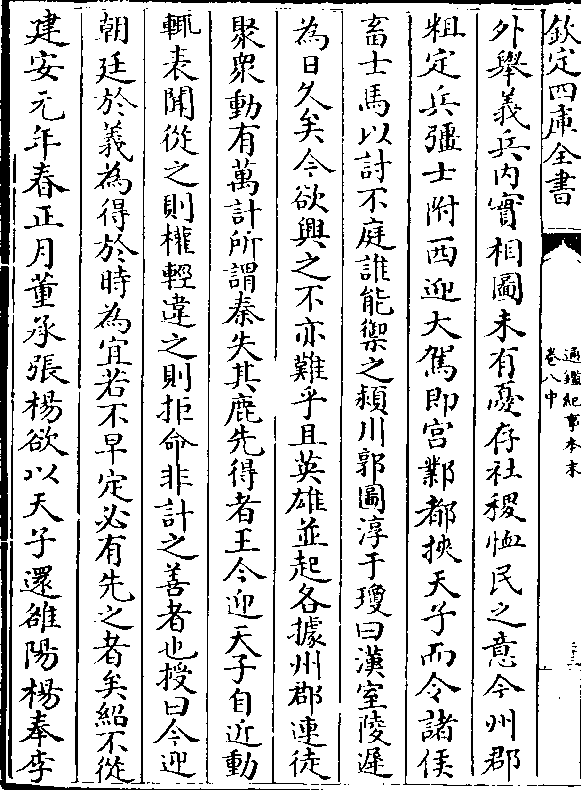 欽定四庫全書
通鑑紀事本末
卷八中
外舉義兵内實相圖未有憂存社稷恤民之意今州郡
粗定兵彊士附西迎大駕即宫鄴都挾天子而令諸侯
畜士馬以討不庭誰能禦之潁川郭圖淳于瓊曰漢室陵遲
為日久矣今欲興之不亦難乎且英雄並起各據州郡連徒
聚衆動有萬計所謂秦失其鹿先得者王今迎天子自近動
輒表聞從之則權輕違之則拒命非計之善者也授曰今迎
朝廷於義為得於時為宜若不早定必有先之者矣紹不從
建安元年春正月董承張楊欲以天子還雒陽楊奉李